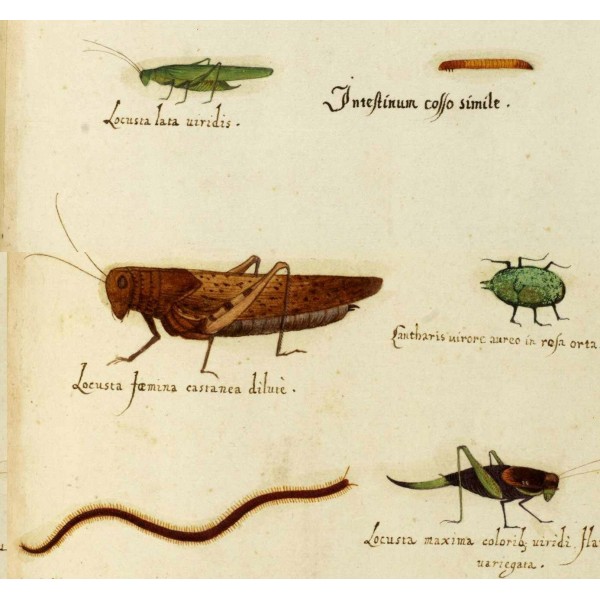 Locusta lata uiridis.
Intestinum cosso simile.
Cantharis uirore aureo in rosa orta
Locusta fœmina castanea dilutè.
Locusta maxima colorib9 uiridi.
uariegata.